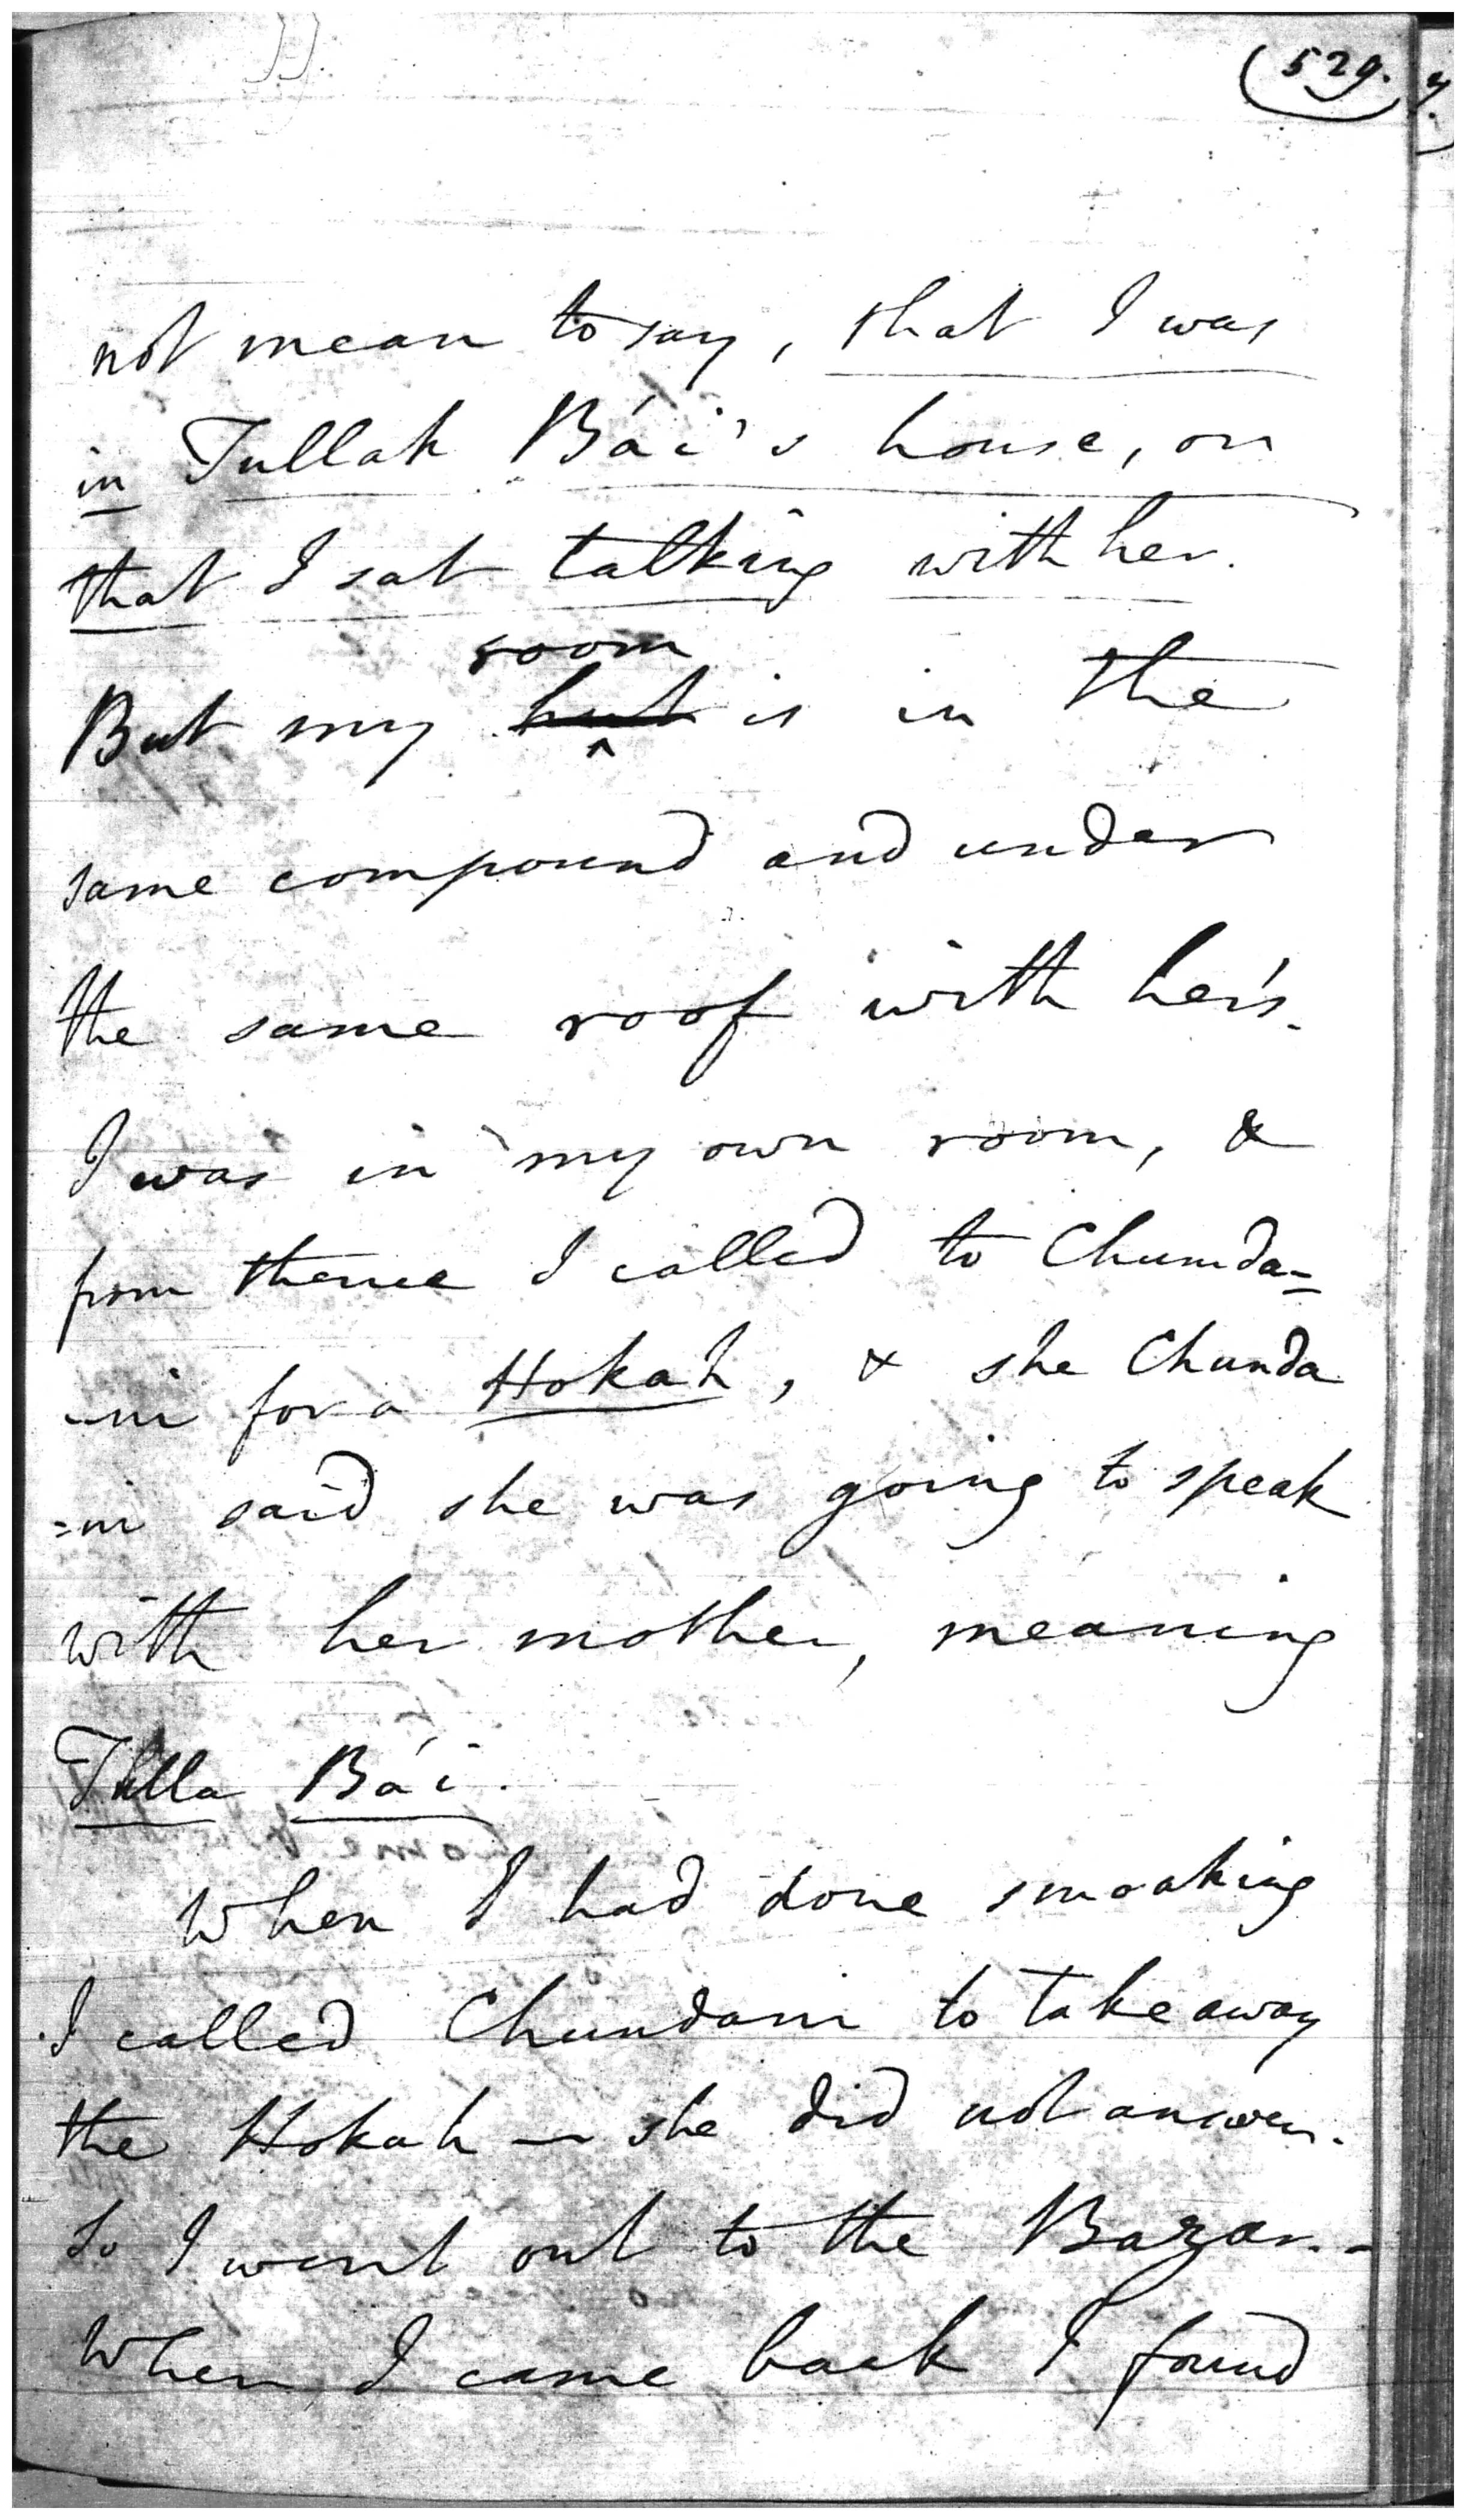 (529.
not mean to say, that I was
in Tullah Bái's house, or
that I sat talking with her.
room
But my hut is in the
same compound and under
the same roof with her's.
I was in my own room, &
from thence I called to Chunda=
-ni for a Hokah, & she Chunda
=ni said she was going to speak
with her mother, meaning
Tulla Bái.
When I had done smoaking
I called Chundani to take away
the Hokah – she did not answer.
So I went out to the Bazar. -
When I came back I found